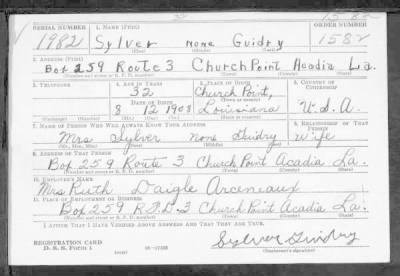 SERIAL NUMBER 1. NAME (Print) ORDER NUMBER
1982 Sylver none Guidry 1582
(First) (Middle) (Last)
2. ADDRESS (Print)
Box 259 Route 3 Church Point Acadia La.
(Number and street or R. F. D. number) (Town) (County) (State)
3. TELEPHONE 4. AGE IN YEARS 5. PLACE OF BIRTH 6. COUNTRY OF CITIZENSHIP
32 Church Point,
DATE OF BIRTH (Town or county)
8 12 1908 Louisiana U.S.A.
(Mo.) (Day) (Yr.) (State or country)
7. NAME OF PERSON WHO WILL ALWAYS KNOW YOUR ADDRESS 8. RELATIONSHIP OF THAT PERSON
Mrs Sylver none Guidry Wife
(Mr., Mrs., Miss) (First) (Middle) (Last)
9. ADDRESS OF THAT PERSON
Box 259 Route 3 Church Point Acadia La.
(Number and street or R. F. D. number) (Town) (County) (State)
10. EMPLOYER'S NAME
Mrs Ruth Daigle Arceneaux
11. PLACE OF EMPLOYMENT OR BUSINESS
Box 259 R.F.D. 3 Church Point Acadia La.
(Number and street or R. F. D. number) (Town) (County) (State)
I AFFIRM THAT I HAVE VERIFIED ABOVE ANSWERS AND THAT THEY ARE TRUE.
REGISTRATION CARD Sylver Guidry
D. S. S. Form 1 (Registrant's signature)